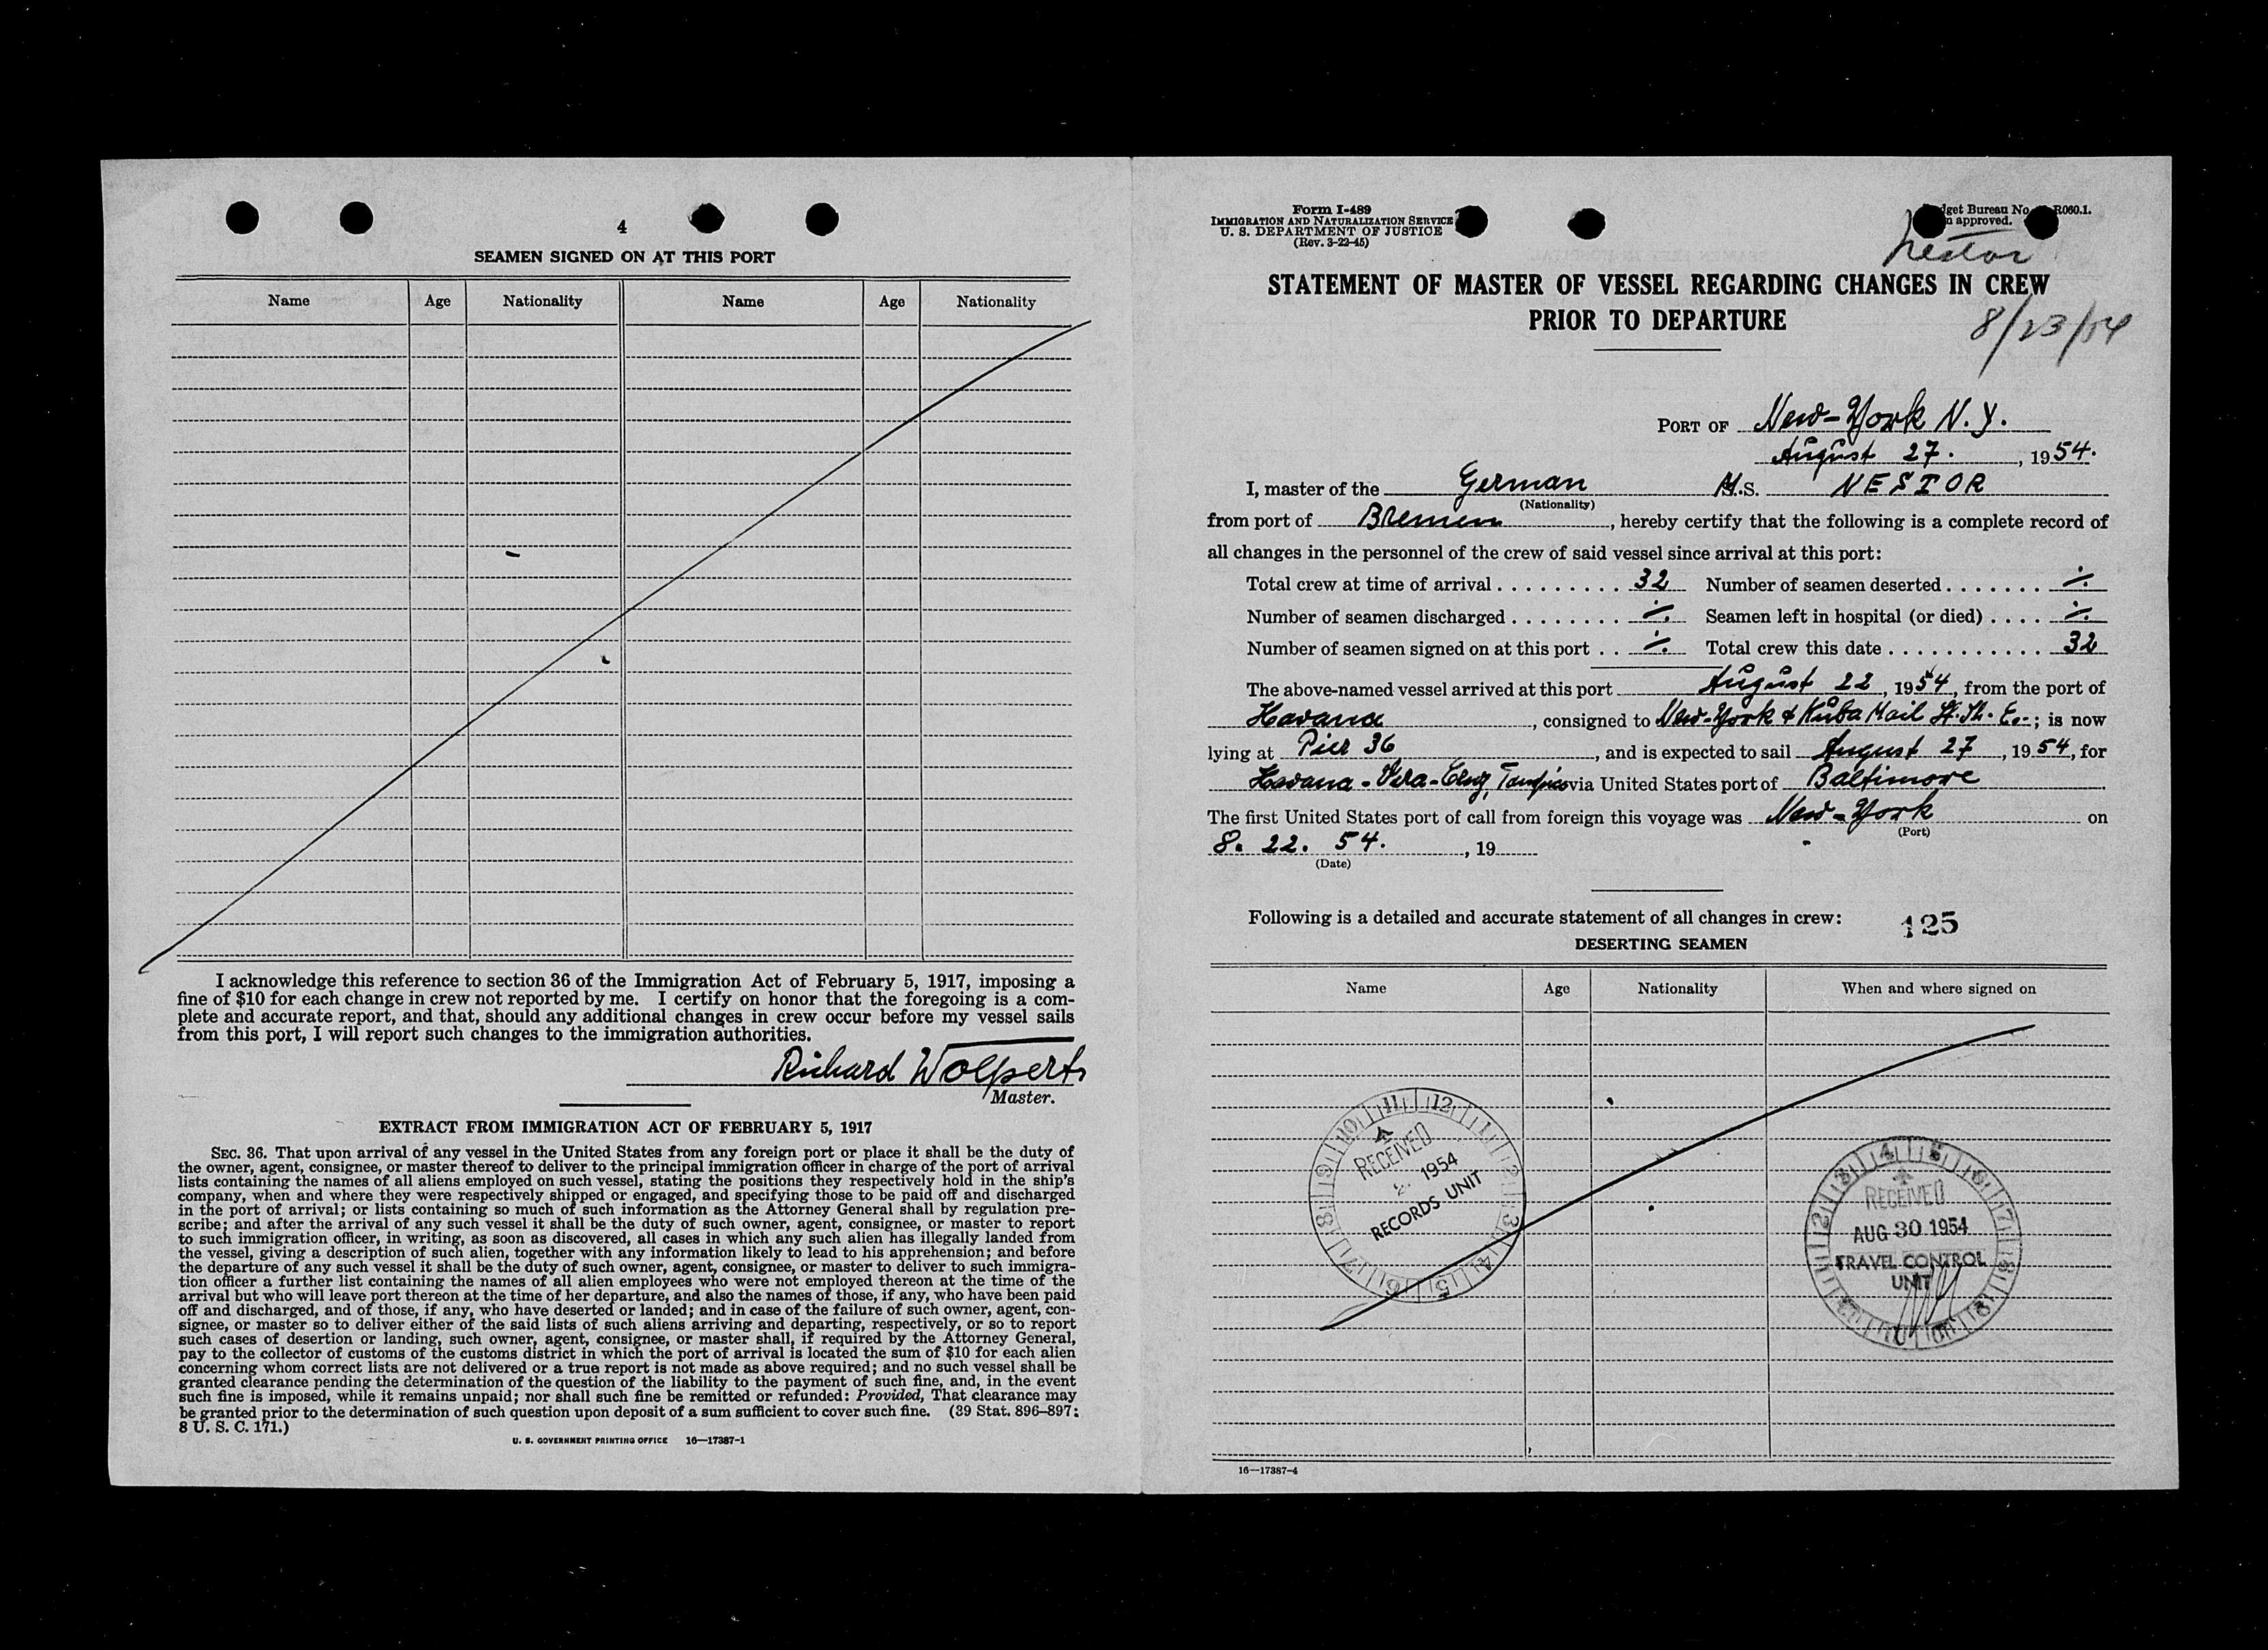 4
SEAMEN SIGNED ON AT THIS PORT
Name Age Nationality Name Age Nationality
I acknowledge this reference to section 36 of the Immigration Act of February 5, 1917, imposing a
fine of $10 for each change in crew not reported by me. I certify on honor that the foregoing is a com-
plete and accurate report, and that, should any additional changes in crew occur before my vessel sails
from this port, I will report such changes to the immigration authorities.
Richard Wolperts
Master.
EXTRACT FROM IMMIGRATION ACT OF FEBRUARY 5, 1917
SEC. 36. That upon arrival of any vessel in the United States from any foreign port or place it shall be the duty of
the owner, agent, consignee, or master thereof to deliver to the principal immigration officer in charge of the port of arrival
lists containing the names of all aliens employed on such vessel, stating the positions they respectively hold in the ship's
company, when and where they were respectively shipped or engaged, and specifying those to be paid off and discharged
in the port of arrival; or lists containing so much of such information as the Attorney General shall by regulation pre-
scribe; and after the arrival of any such vessel it shall be the duty of such owner, agent, consignee, or master to report
to such immigration officer, in writing, as soon as discovered, all cases in which any such alien has illegally landed from
the vessel, giving a description of such alien, together with any information likely to lead to his apprehension; and before
the departure of any such vessel it shall be the duty of such owner, agent, consignee, or master to deliver to such immigra-
tion officer a further list containing the names of all alien employees who were not employed thereon at the time of the
arrival but who will leave port thereon at the time of her departure, and also the names of those, if any, who have been paid
off and discharged, and of those, if any, who have deserted or landed; and in case of the failure of such owner, agent, con-
signee, or master so to deliver either of the said lists of such aliens arriving and departing, respectively, or so to report
such cases of desertion or landing, such owner, agent, consignee, or master shall, if required by the Attorney General,
pay to the collector of customs of the customs district in which the port of arrival is located the sum of $10 for each alien
concerning whom correct lists are not delivered or a true report is not made as above required; and no such vessel shall be
granted clearance pending the determination of the question of the liability to the payment of such fine, and, in the event
such fine is imposed, while it remains unpaid; nor shall such fine be remitted or refunded: Provided, That clearance may
be granted prior to the determination of such question upon deposit of a sum sufficient to cover such fine. (39 Stat. 896–897;
8 U. S. C. 171.)
U. S. GOVERNMENT PRINTING OFFICE 16—17387-1
Form I-489
IMMIGRATION AND NATURALIZATION SERVICE
U. S. DEPARTMENT OF JUSTICE
(Rev. 3-22-45)
get Bureau No. R060.1.
approved.
Nestor
STATEMENT OF MASTER OF VESSEL REGARDING CHANGES IN CREW
PRIOR TO DEPARTURE
8/23/54
PORT OF New-York N.Y.
August 27. , 1954.
I, master of the German M.S. NESTOR
(Nationality)
from port of Bremen, hereby certify that the following is a complete record of
all changes in the personnel of the crew of said vessel since arrival at this port:
Total crew at time of arrival . . . . . . . . . . 32 Number of seamen deserted . . . . . . . ⁒
Number of seamen discharged . . . . . . . . ⁒ Seamen left in hospital (or died) . . . . ⁒
Number of seamen signed on at this port . . ⁒ Total crew this date . . . . . . . . . . . . 32
The above-named vessel arrived at this port August 22, 1954, from the port of
Havana, consigned to New-York & Kuba Mail St. Sh. Co.; is now
lying at Pier 36, and is expected to sail August 27, 1954, for
Havana - Vera-Cruz, Tampico via United States port of Baltimore
The first United States port of call from foreign this voyage was New-York on
(Port)
8. 22. 54. , 19
(Date)
Following is a detailed and accurate statement of all changes in crew: 125
DESERTING SEAMEN
Name Age Nationality When and where signed on
RECEIVED
1954
RECORDS UNIT
RECEIVED
AUG 30 1954
TRAVEL CONTROL
UNIT
16—17387-4